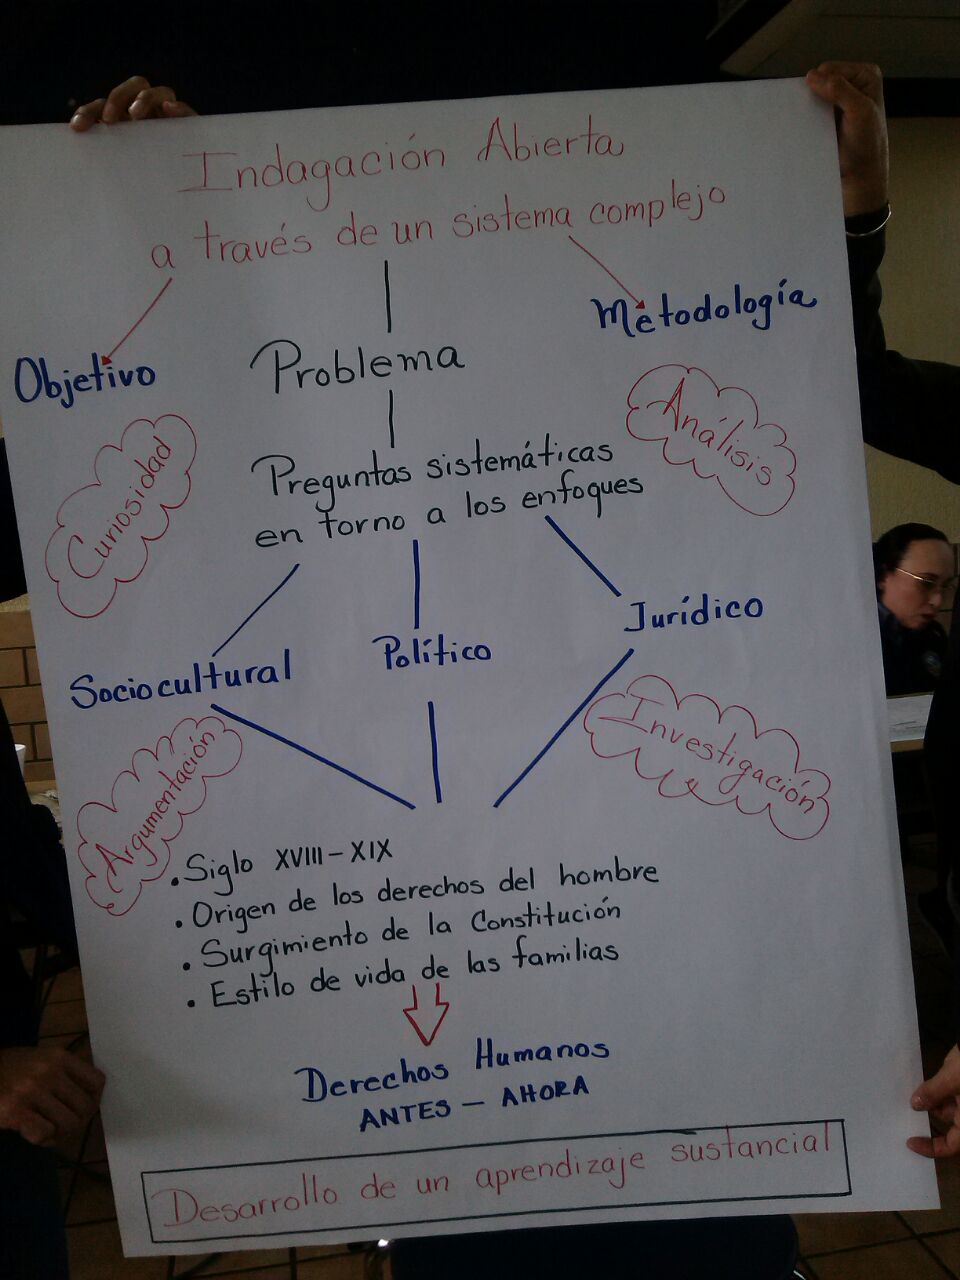 Indagación Abierta
a través de un sistema complejo
Objetivo
Problema
Metodología
Curiosidad
Análisis
Preguntas sistemáticas
en torno a los enfoques
Sociocultural
Político
Jurídico
Argumentación
Investigación
• Siglo XVIII - XIX
• Origen de los derechos del hombre
• Surgimiento de la Constitución
• Estilo de vida de las familias
Derechos Humanos
ANTES - AHORA
Desarrollo de un aprendizaje sustancial